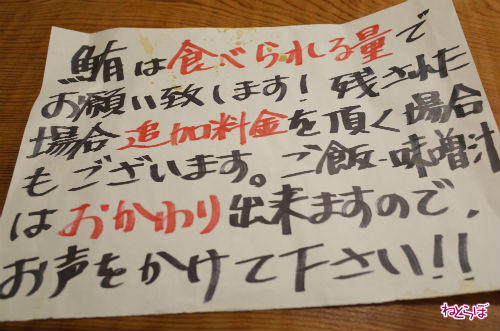 鮪は食べられる量で
お願い致します!残された
場合追加料金を頂く場合
もございます。ご飯・味噌汁
はおかわり出来ますので、
お声をかけて下さい!!
ねとらぼ